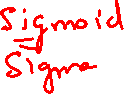 Sigmoid
Sigma